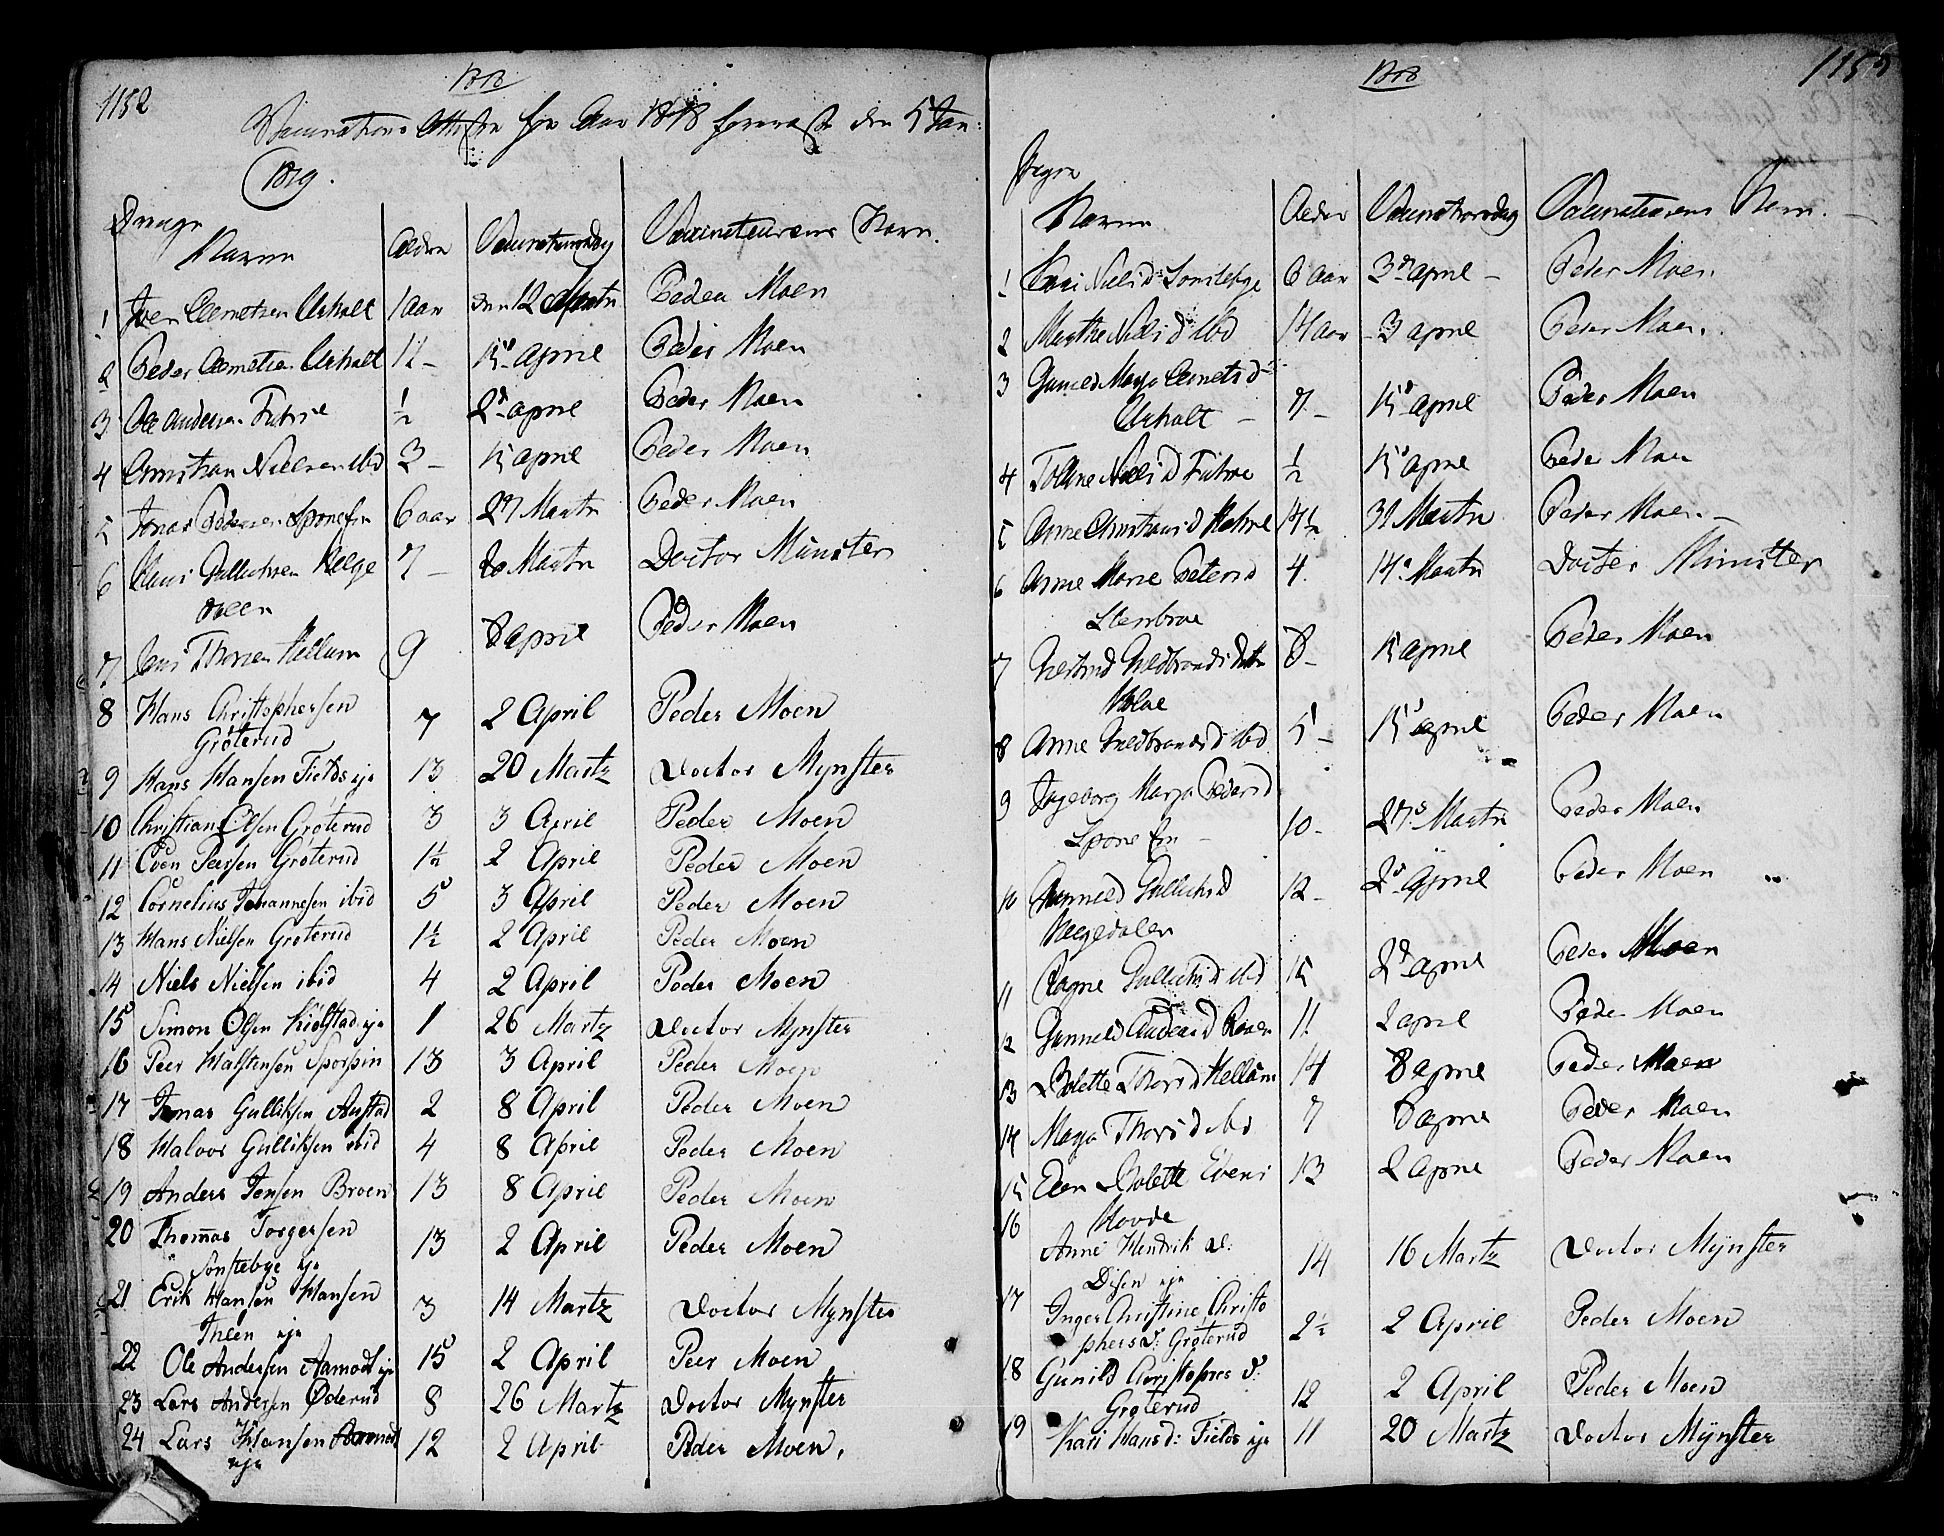 1152
1818
Vaccinations Attester for Aar 1818 forevist den 5 Jan:
1819.
Drenge
Navne Alder Vaccinationsdag Vaccinateurens Navn.
1 Iver Clemetsen Asholt 1 Aar den 12 Martz Peder Moen
2 Peder Clemetsen Asholt 12 - 15 April Peder Moen
3 Ole Andersen Fuhre ½ 2d April Peder Moen
4 Christian Nielsen ibd 3 - 15 April Peder Moen
5 Jonas Pedersen Sponefin 6 aar 27 Martz Peder Moen
6 Claus Gullichsen Helge 7 - 20 Martz Doctor Münster
dalen
7 Jens Thorsen Hellum 9 8 April Peder Moen
8 Hans Christophersen 7 2 April Peder Moen
Grøterud
9 Hans Hansen Fields eje 13 20 Martz Doctor Mynster
10 Christian Olsen Grøterud 3 3 April Peder Moen
11 Even Peersen Grøterud 1½ 2 April Peder Moen
12 Cornelius Johannesen ibid 5 3 April Peder Moen
13 Hans Nielsen Grøterud 1½ 2 April Peder Moen
14 Niels Nielsen ibid 4 2 April Peder Moen
15 Simon Olsen Kiølstad eje 1 26 Martz Doctor Mynster
16 Peer Halstensen 13 3 April Peder Moen
17 Jonas Gulliksen Anstad 2 8 April Peder Moen
18 Halvor Gulliksen ibid 4 8 April Peder Moen
19 Anders Jensen Broen 13 8 April Peder Moen
20 Thom̅as Torgersen 13 2 April Peder Moen
Sønstebye eje
21 Erik Hansen Hansen 3 14 Martz Doctor Mynster
Theen eje
22 Ole Andersen Aamodt eje 15 2 April Peer Moen
23 Lars Andersen Øderud 8 26 Martz Doctor Mynster
eje
24 Lars Hansen Aamodt 12 2 April Peder Moen.
eje
1818
1153
Pigen
Navne Alder Vaccinationsdag Vaccinateurens Navn.
1 Kari Nielsd Sønstebye 6 Aar 3d April - Peder Moen
2 Marthe Nielsd ibd 14 Aar - 3 April Peder Moen
3 Gunild Marja Clemetsd
Asholt - 7 - 15d April Peder Moen
4 Tolline Nielsd Fuhre ½ 15d April Peder Moen
5 Anne Christensd 14½ 31 Martz Peder Moen. -
6 Anne Marie Petersd 4. 14d Martz Doctor Münster
Stenbroe
7 8 - 15 April Peder Moen
8 Anne ibd 5 - 15d April Peder Moen
9 Ingeborg Marja Pedersd
Sponefin - 10 - 27d Martz Peder Moen
10 Gunnild Gullichsd 12 - 2d April Peder Moen
Helgedalen
11 Ragne Gullichsd ibd 15 2d April Peder Moen
12 Gunnild Andersd Broen 11 2 April Peder Moen
13 Bolette Thorsd Hellum 14 8 April Peder Moen
14 Marja Thorsd ibd 7 8 April Peder Moen
15 Elen Bolette Evens 13 2 April Peder Moen
Hovde
16 Anne Hendrik D: 14 16 Martz Doctor Mynster
Disen eje
17 Inger Christine Christo 2½ 2 April Peder Moen
phers D: Grøterud
18 Gunild Christophers D: 12 2 April Peder Moen
Grøterud
19 Kari Hansd: Fields eje 11 20 Martz Doctor Mynster